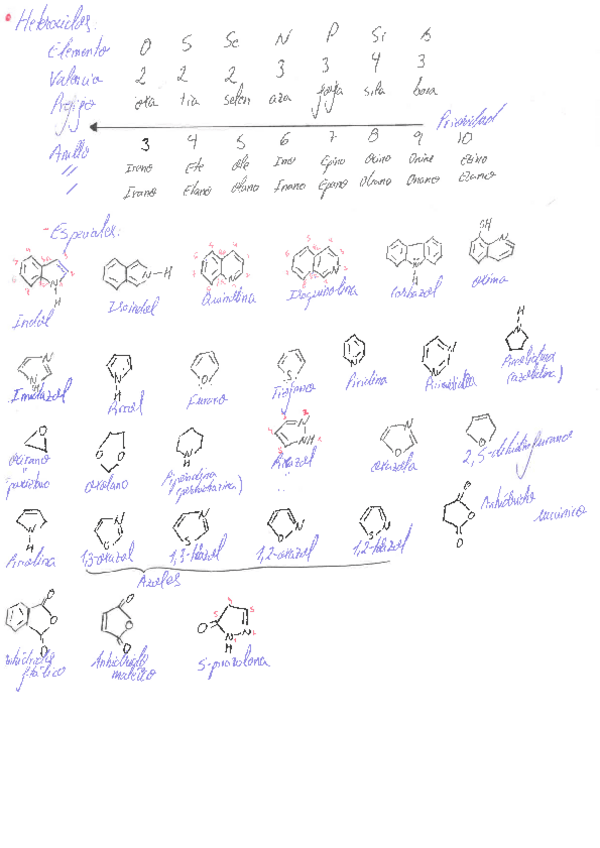 • Heterociclos:
Elemento O S Se N P Si B
Valencia 2 2 2 3 3 4 3
Prefijo oxa tia selen aza fosfa sila bora
Prioridad
Anillo 3 4 5 6 7 8 9 10
// Ireno Ete Ole Ino Epino Ocino Onine Ecino
/ Irano Etano Olano Inano Epano Ocano Onano Ecano
- Especiales:
Indol Isoindol Quinolina Isoquinolina Carbazol Oxima
Imidazol Pirrol Furano Tiofeno Piridina Pirimidina Pirrolidina
Oxirano Oxolano Piperidina Pirazol Oxazola 2,5-dehidrofurano
Anhídrido succínico
Pirrolina 1,3-oxazol 1,3-tiazol 1,2-oxazol 1,2-tiazol
Azoles
Anhídrido ftálico Anhídrido maleico 5-pirazolona